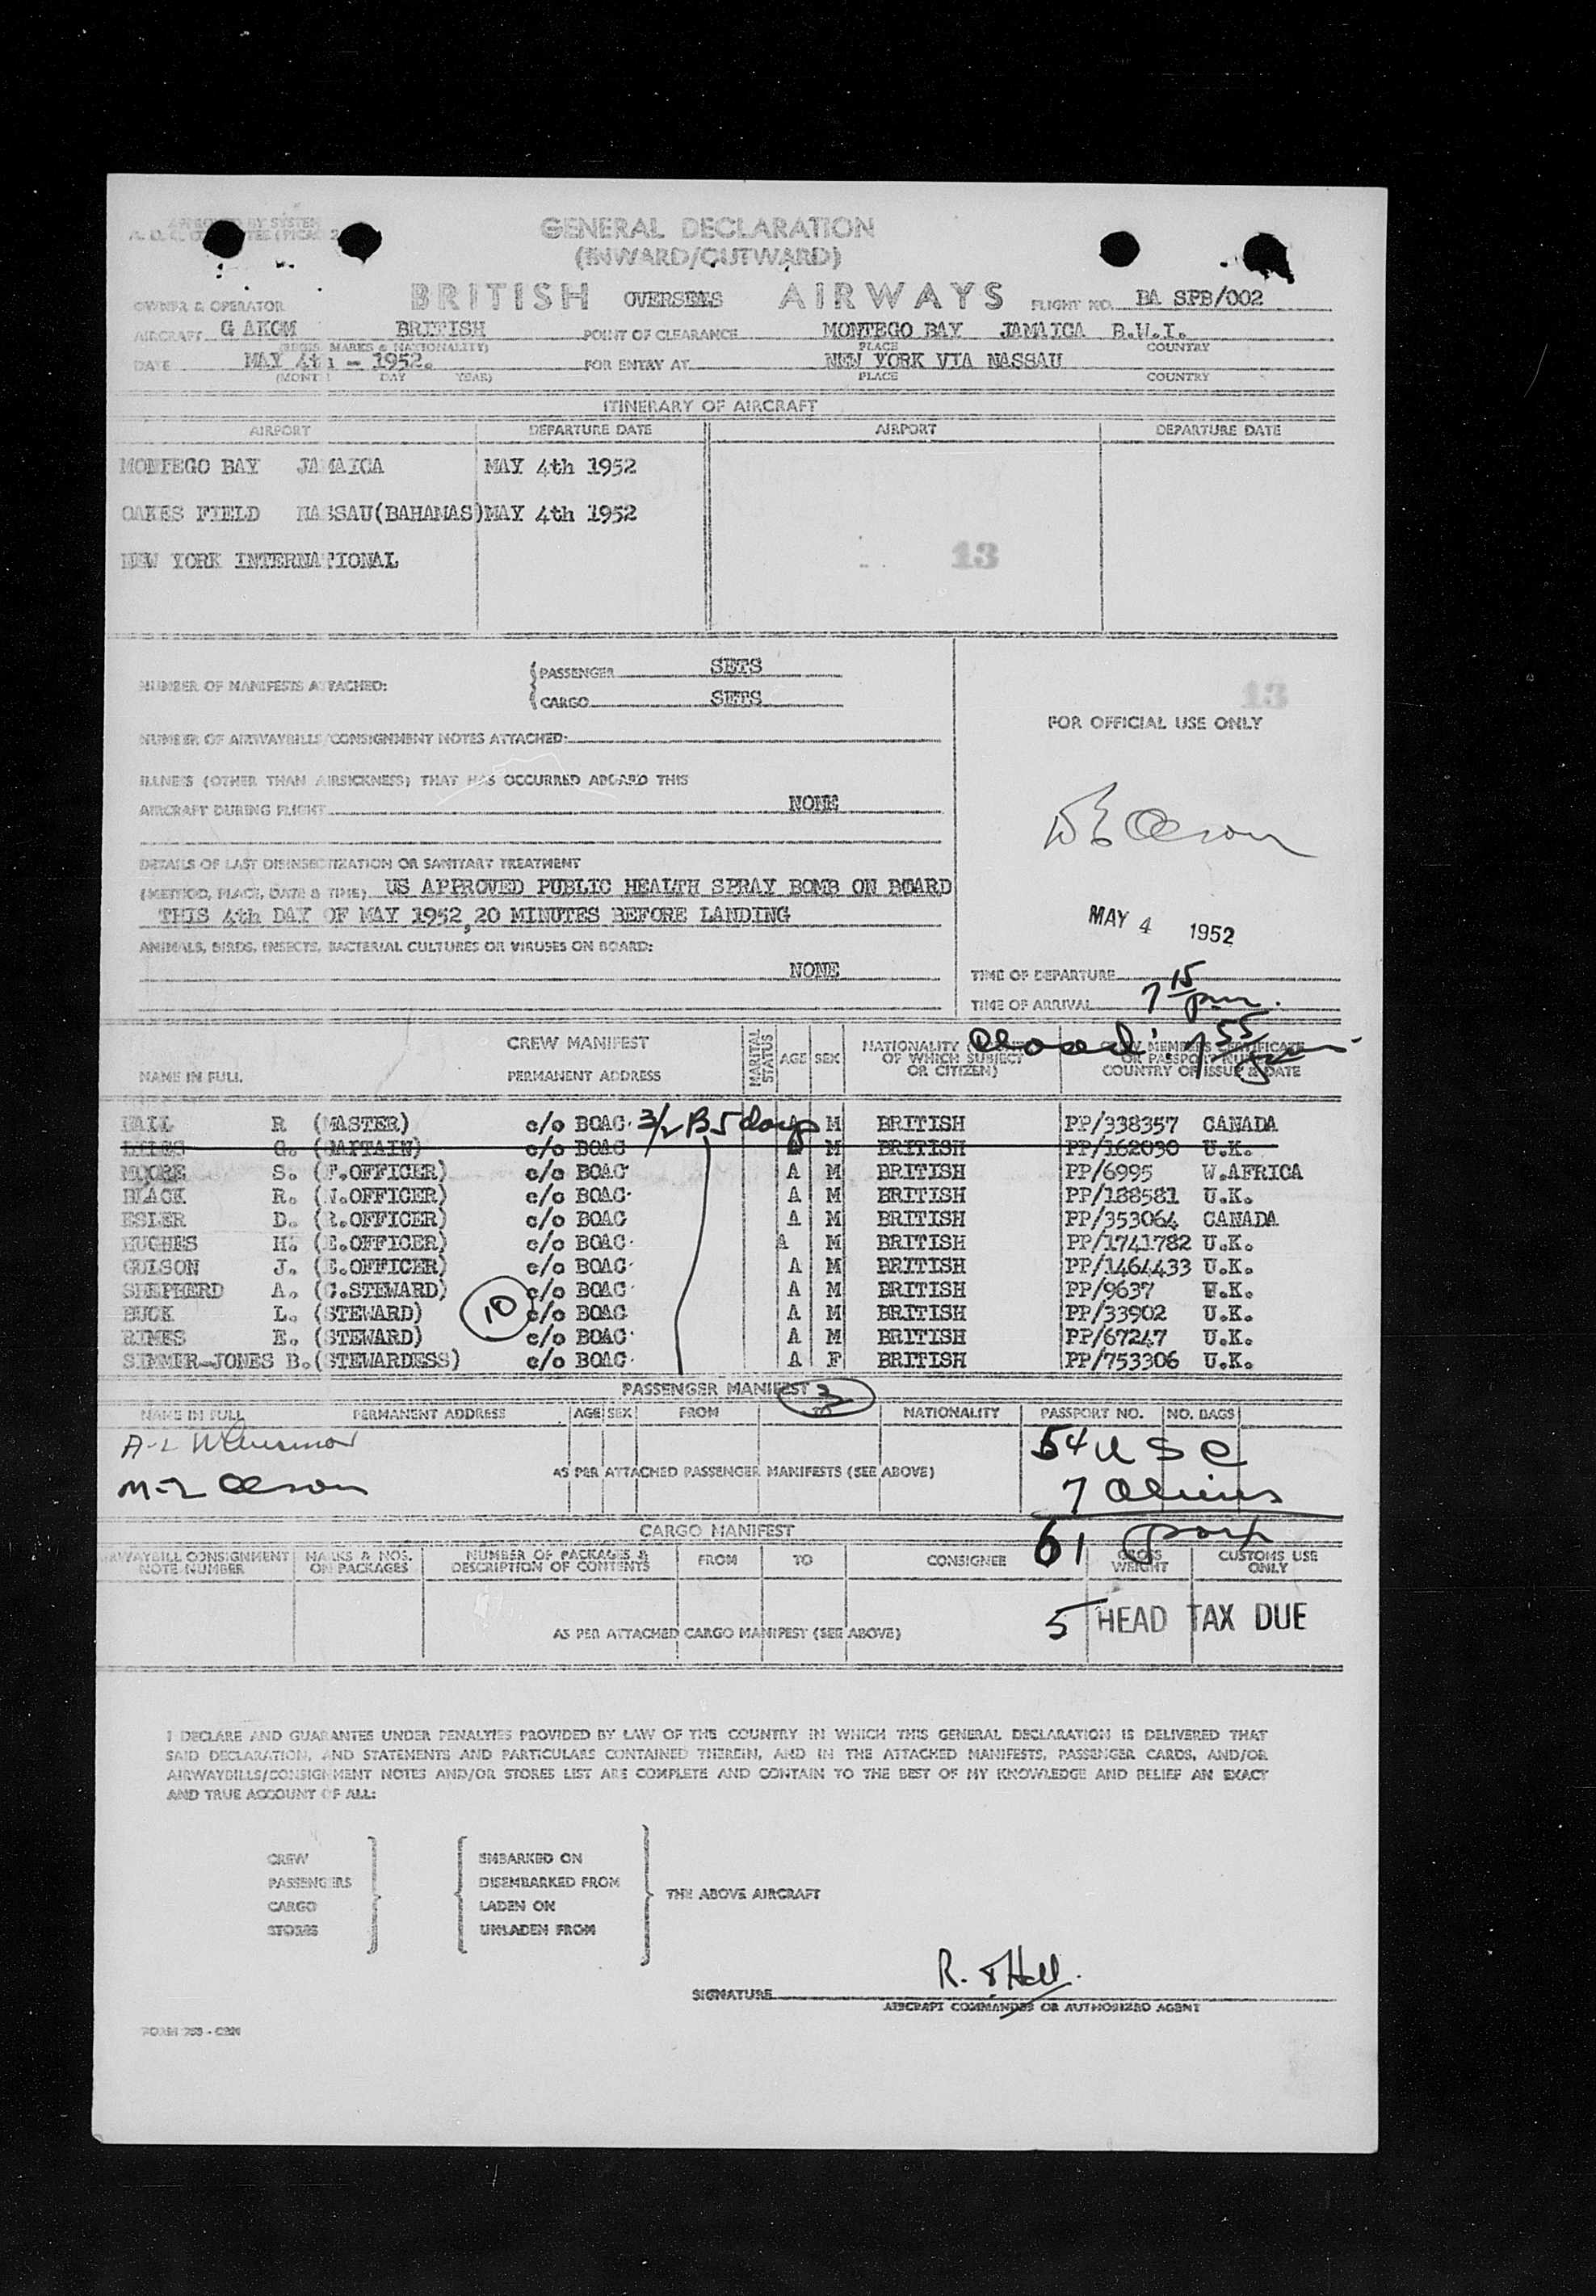 GENERAL DECLARATION
(INWARD/OUTWARD)
OWNER & OPERATOR BRITISH OVERSEAS AIRWAYS FLIGHT NO. BA SPB/002
AIRCRAFT G AKGM BRITISH POINT OF CLEARANCE MONTEGO BAY JAMAICA B.W.I.
(REGIS. MARKS & NATIONALITY) PLACE COUNTRY
DATE MAY 4th - 1952. FOR ENTRY AT NEW YORK VIA NASSAU
(MONTH DAY YEAR) PLACE COUNTRY
ITINERARY OF AIRCRAFT
AIRPORT DEPARTURE DATE AIRPORT DEPARTURE DATE
MONTEGO BAY JAMAICA MAY 4th 1952
OAKES FIELD NASSAU(BAHAMAS) MAY 4th 1952
NEW YORK INTERNATIONAL 13
NUMBER OF MANIFESTS ATTACHED: PASSENGER SETS
CARGO SETS
13
FOR OFFICIAL USE ONLY
NUMBER OF AIRWAYBILLS/CONSIGNMENT NOTES ATTACHED:
ILLNESS (OTHER THAN AIRSICKNESS) THAT HAS OCCURRED ABOARD THIS
AIRCRAFT DURING FLIGHT NONE
DETAILS OF LAST DISINSECTIZATION OR SANITARY TREATMENT
(METHOD, PLACE, DATE & TIME) US APPROVED PUBLIC HEALTH SPRAY BOMB ON BOARD
THIS 4th DAY OF MAY 1952,20 MINUTES BEFORE LANDING
MAY 4 1952
ANIMALS, BIRDS, INSECTS, BACTERIAL CULTURES OR VIRUSES ON BOARD:
NONE
TIME OF DEPARTURE
TIME OF ARRIVAL 7 15 pm.
closed 7 55
CREW MANIFEST MARITAL STATUS AGE SEX NATIONALITY OF WHICH SUBJECT OR CITIZEN) CREW MEMBERS CERTIFICATE OR PASSPORT NUMBER COUNTRY OF ISSUE & DATE
NAME IN FULL PERMANENT ADDRESS
HALL R (MASTER) c/o BOAC 3/2 B5 days A M BRITISH PP/338357 CANADA
G. (CAPTAIN) c/o BOAC M BRITISH PP/162030 U.K.
MOORE S. (F.OFFICER) c/o BOAC A M BRITISH PP/6995 W.AFRICA
BLACK R. (N.OFFICER) c/o BOAC A M BRITISH PP/188581 U.K.
ESLER D. (R.OFFICER) c/o BOAC A M BRITISH PP/353064 CANADA
HUGHES H. (E.OFFICER) c/o BOAC A M BRITISH PP/1741782 U.K.
GULSON J. (E.OFFICER) c/o BOAC A M BRITISH PP/1464433 U.K.
SHEPHERD A. (C.STEWARD) c/o BOAC A M BRITISH PP/9637 U.K.
BUCK L. (STEWARD) 10 c/o BOAC A M BRITISH PP/33902 U.K.
RIMES E. (STEWARD) c/o BOAC A M BRITISH PP/67247 U.K.
SIMMER-JONES B.(STEWARDESS) c/o BOAC A F BRITISH PP/753306 U.K.
PASSENGER MANIFEST
NAME IN FULL PERMANENT ADDRESS AGE SEX FROM TO NATIONALITY PASSPORT NO. NO. BAGS
54 U S C
AS PER ATTACHED PASSENGER MANIFESTS (SEE ABOVE)
M-2 Olson 7 Aliens
61 pax
CARGO MANIFEST
AIRWAYBILL CONSIGNMENT NOTE NUMBER MARKS & NOS. ON PACKAGES NUMBER OF PACKAGES & DESCRIPTION OF CONTENTS FROM TO CONSIGNEE GROSS WEIGHT CUSTOMS USE ONLY
5 HEAD TAX DUE
AS PER ATTACHED CARGO MANIFEST (SEE ABOVE)
I DECLARE AND GUARANTEE UNDER PENALTIES PROVIDED BY LAW OF THE COUNTRY IN WHICH THIS GENERAL DECLARATION IS DELIVERED THAT
SAID DECLARATION, AND STATEMENTS AND PARTICULARS CONTAINED THEREIN, AND IN THE ATTACHED MANIFESTS, PASSENGER CARDS, AND/OR
AIRWAYBILLS/CONSIGNMENT NOTES AND/OR STORES LIST ARE COMPLETE AND CONTAIN TO THE BEST OF MY KNOWLEDGE AND BELIEF AN EXACT
AND TRUE ACCOUNT OF ALL:
CREW EMBARKED ON
PASSENGERS DISEMBARKED FROM
THE ABOVE AIRCRAFT
CARGO LADEN ON
STORES UNLADEN FROM
R. Hall.
SIGNATURE
AIRCRAFT COMMANDER OR AUTHORIZED AGENT